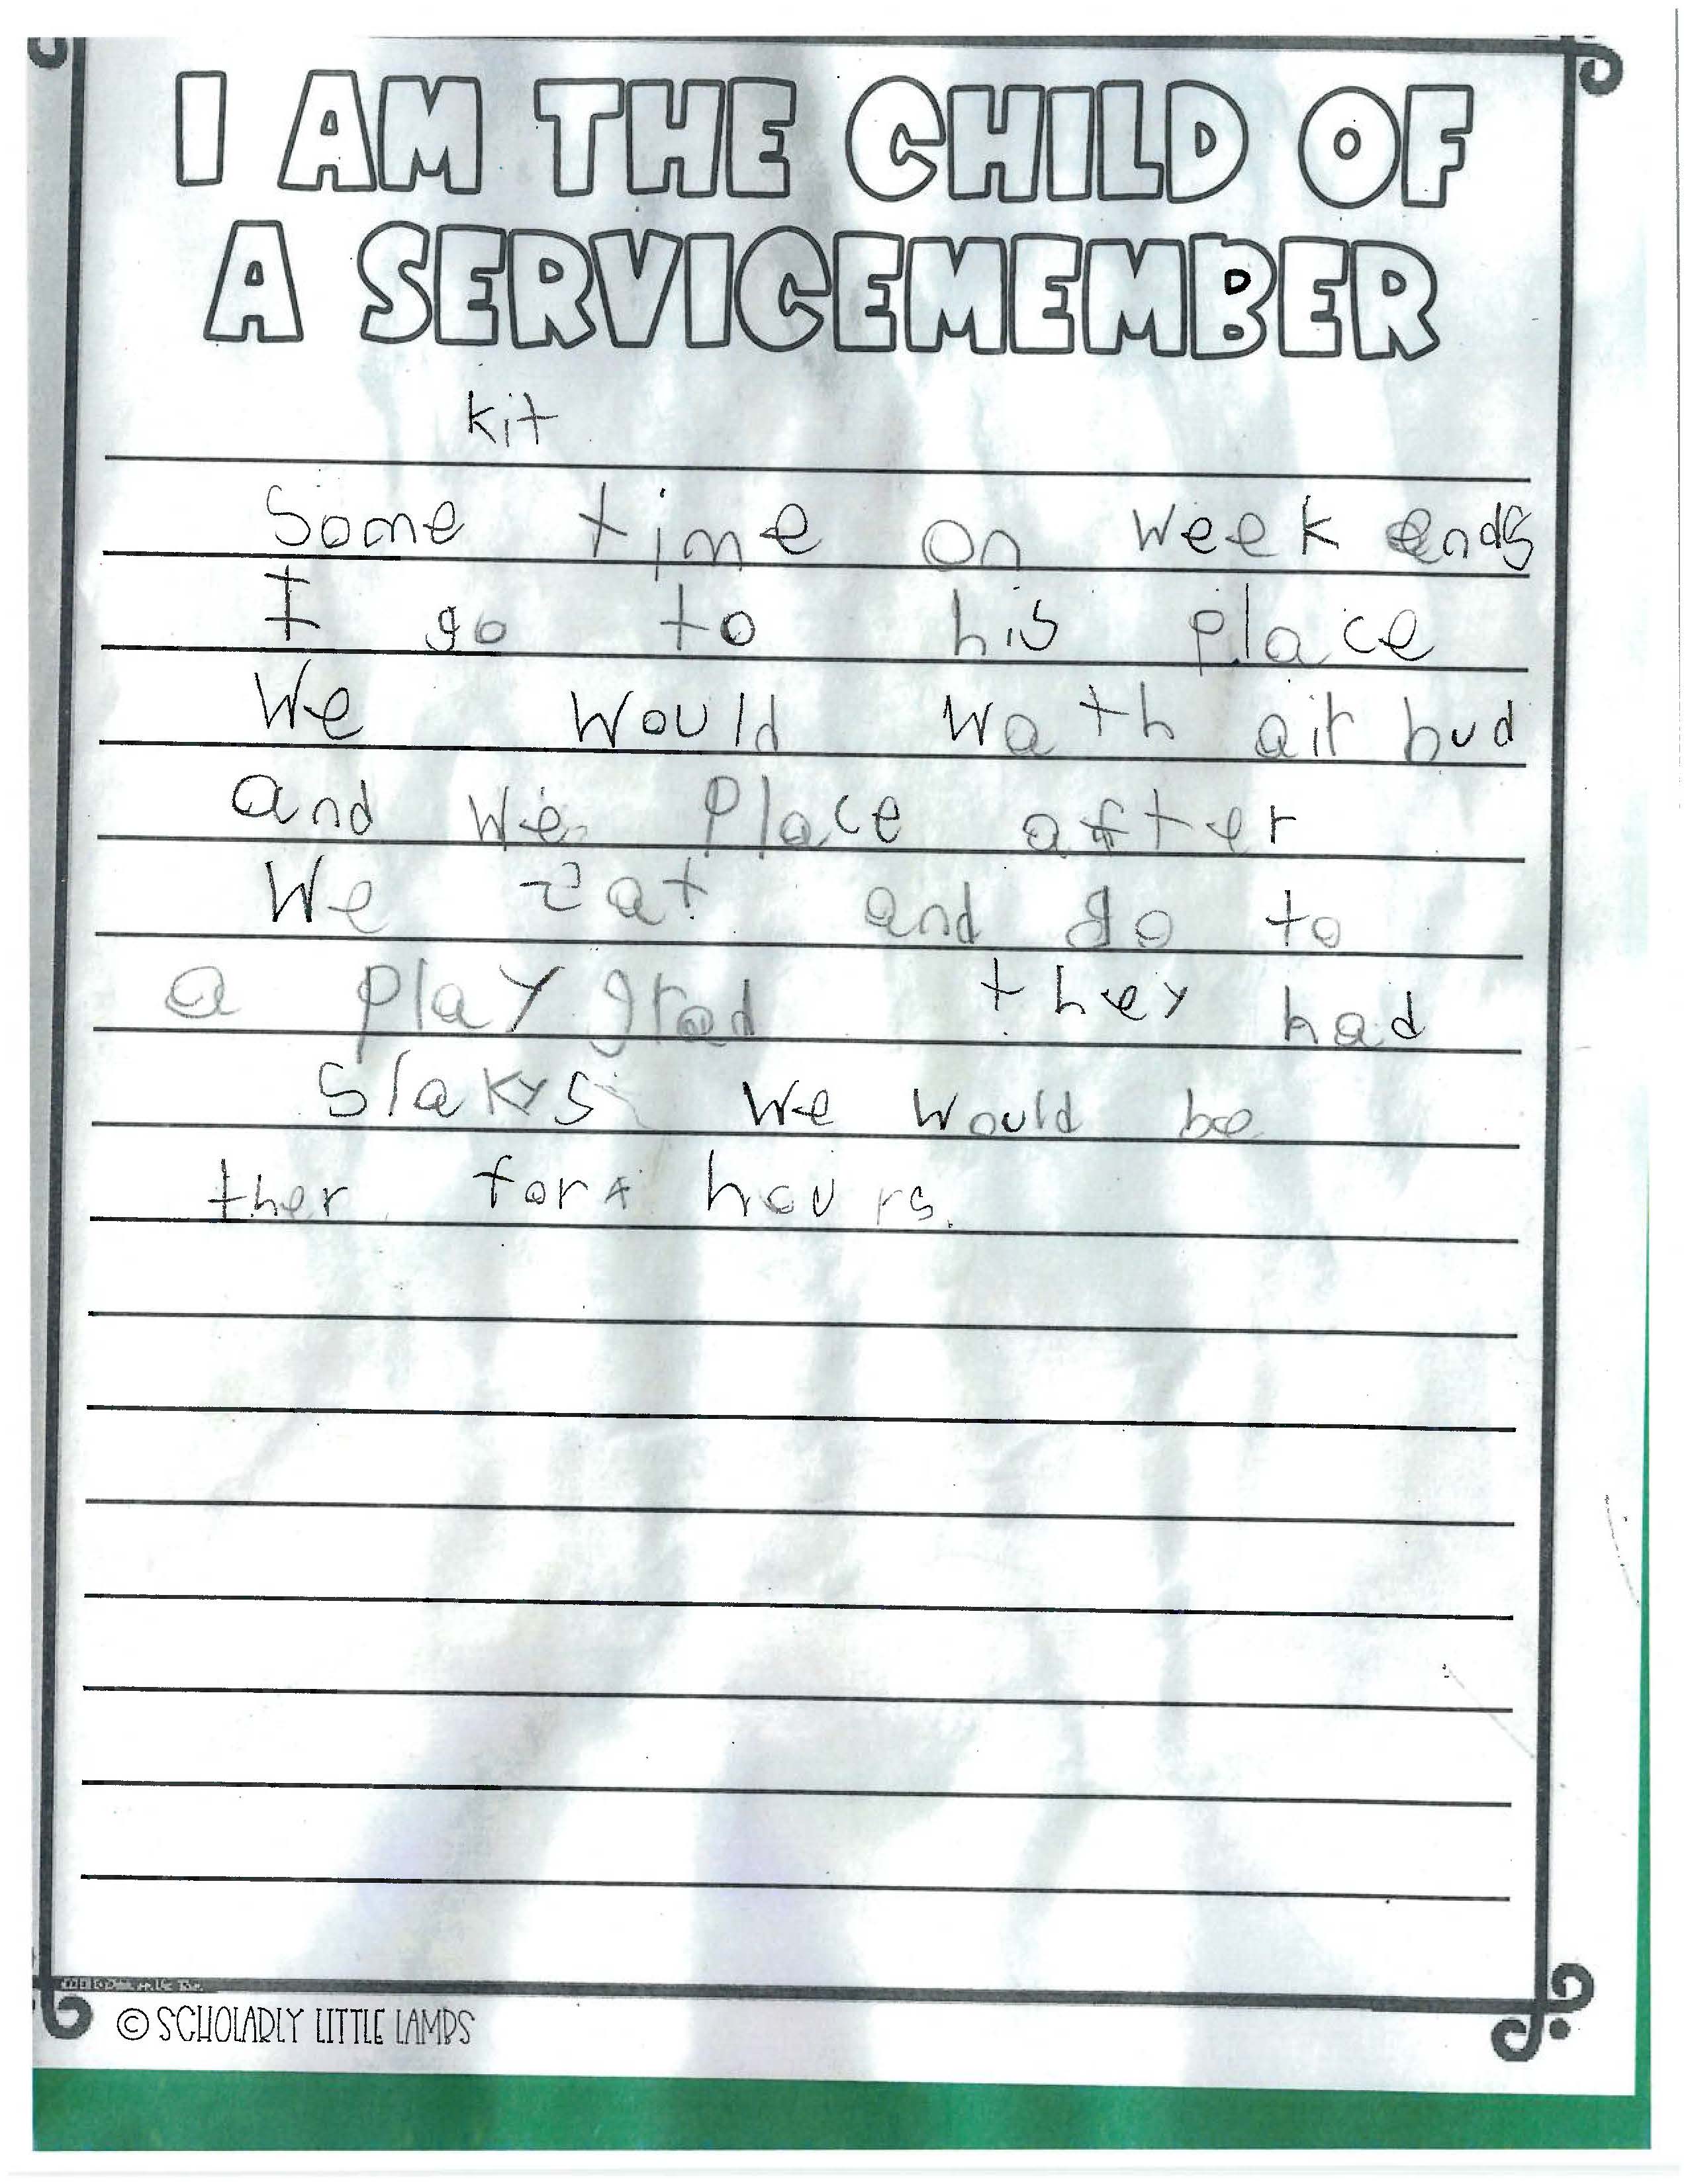 I AM THE CHILD OF
A SERVICEMEMBER
kit
Some time on week ends
I go to his place
We would wath air bud
and we place after
We eat and go to
a play grad they had
slakys we would be
ther for 4 hours.
© SCHOLARLY LITTLE LAMBS